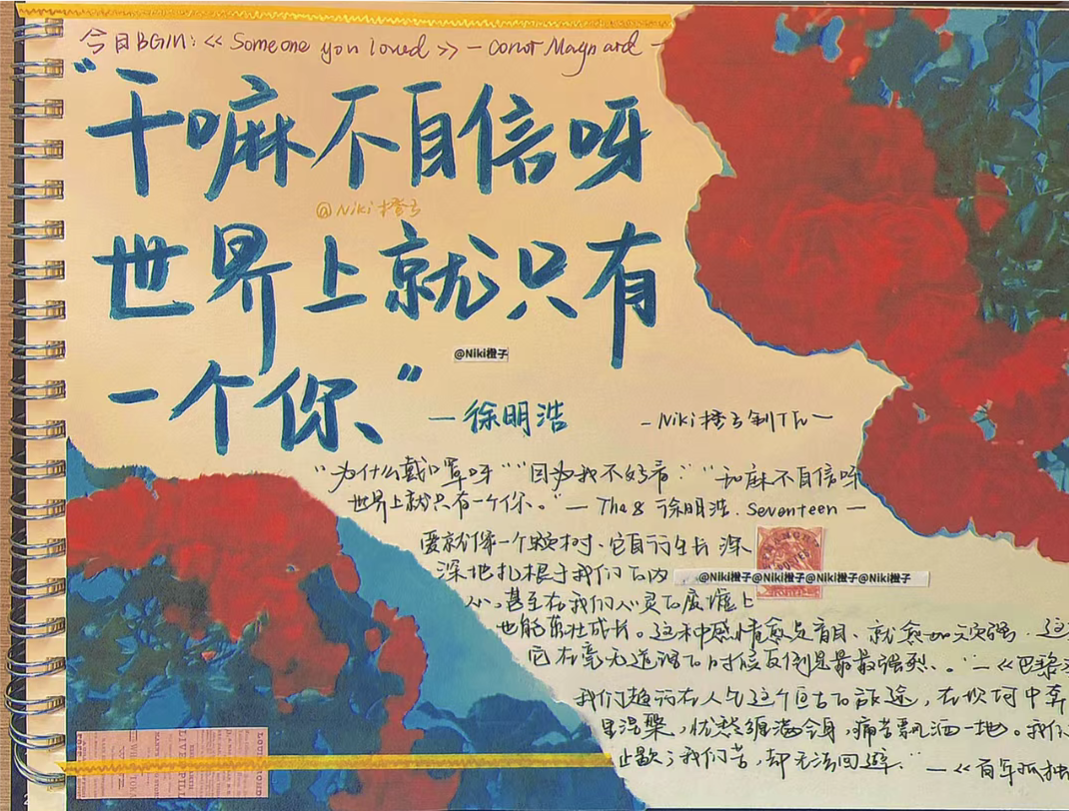 今日BGM:<<Someone you loved>>-conor Maynard-
“干嘛不自信呀
@Niki橙子
世界上就只有
@Niki橙子
一个你、”
—徐明浩
-Niki橙子制
“为什么戴口罩呀”“因为我不好看”“干嘛不自信呀
世界上就只有一个你。”—The8 徐明浩.Seventeen—
爱就像一个颗树、它自行生长 深
深地扎根于我们的内
@Niki橙子@Niki橙子@Niki橙子@Niki橙子
心,甚至在我们心灵的废墟上
也能茁壮成长。这种感情愈是盲目、就愈加顽强.这
它在毫无道理的时候反倒是最最强烈、。”—<<巴黎圣
我们趟行在人生这个亘古的旅途,在坎坷中奔
里涅槃,忧愁缠满全身,痛苦飘洒一地。我们
止歇;我们苦,却无法回避.”—<<百年孤独